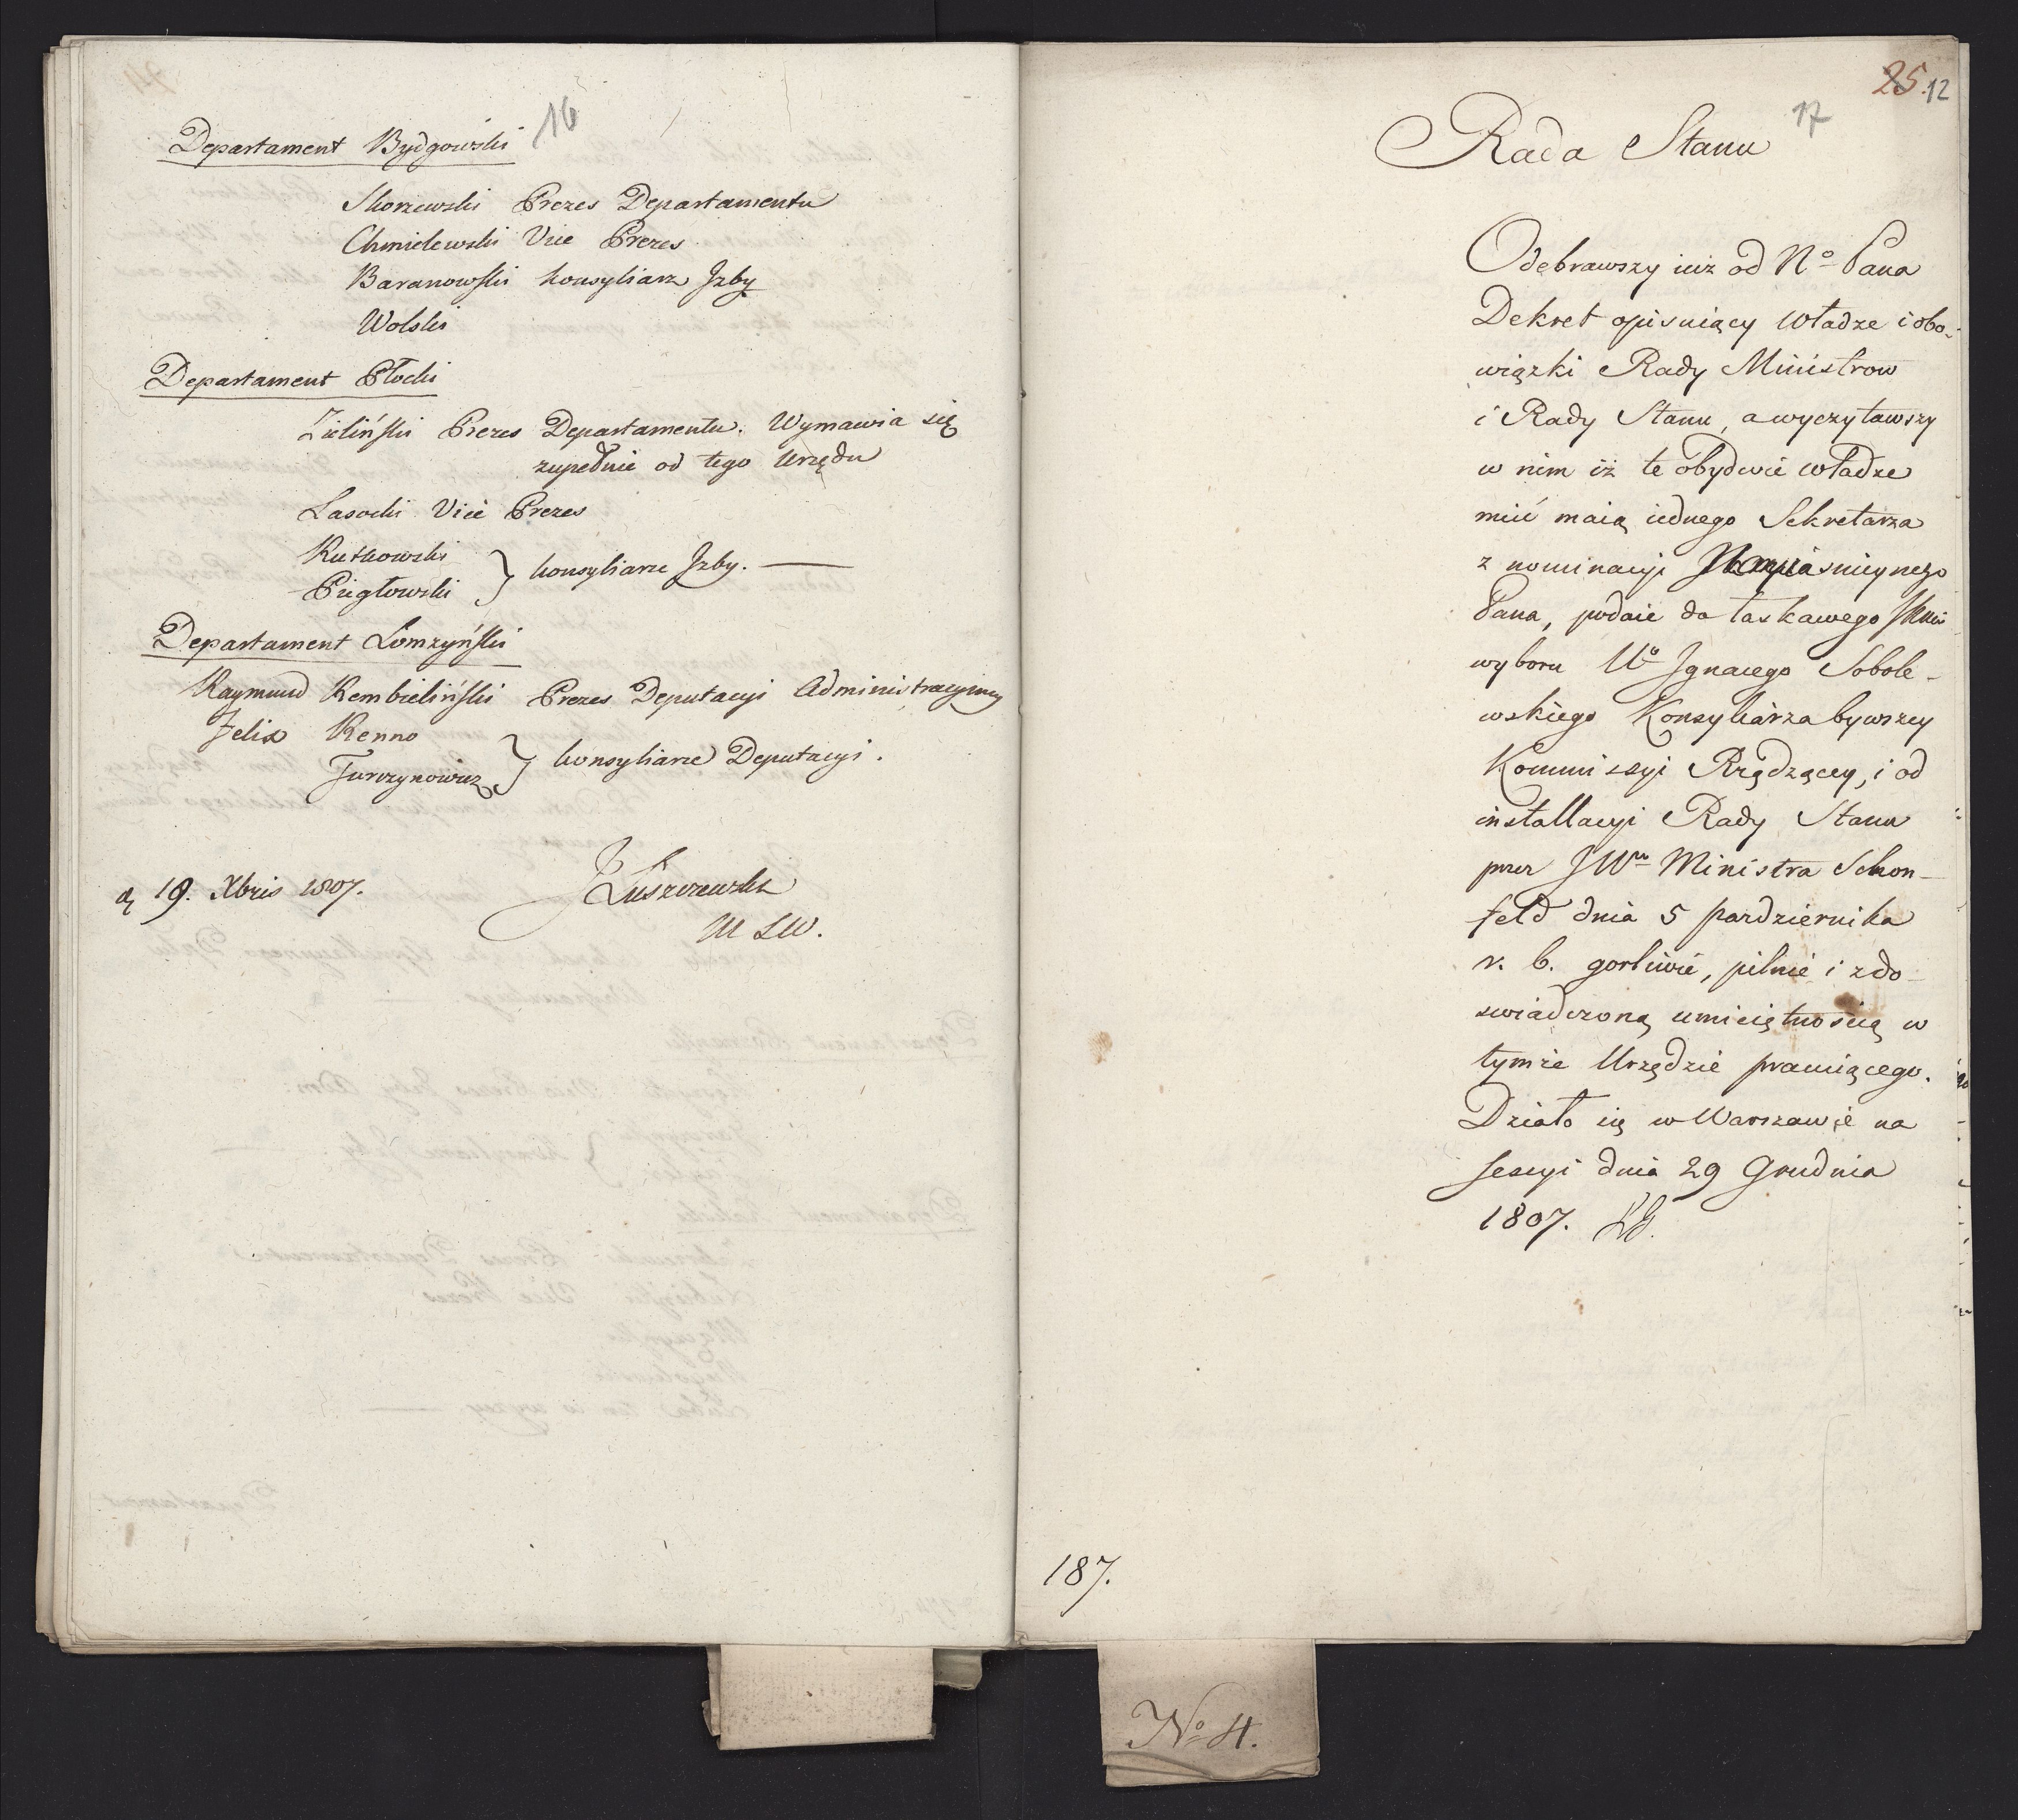 16
Departament Bydgowski
Skorzewski Prezes Departamentu
Chmielewski Vice Prezes
Baranowski konsyliarz Jzby
Wolski
Departament Płocki
Zieliński Prezes Departamentu. Wymawia się
zupełnie od tego Urzędu
Lasocki Vice Prezes
Rutkowski
Piegłowski } konsyliarze Jzby. —
Departament Łomzyński
Raymund Rembieliński Prezes Deputacyi Administracyiney
Felix Renno
Turczynowicz } konsyliarze Deputacyi.
d 19. Xbris 1807.
JŁuszczewski
M SW.
25. 12
17
Rada Stanu
Odebrawszy iuż od No Pana
Dekret opisuiący Władze i obo-
wiązki Rady Ministrow
i Rady Stanu, a wyczytawszy
w nim iż te obydwie władze
mieć maią iednego Sekretarza
z nominacyi Nayiasnieynego
Pana, podaie do łaskawego
wyboru Wo Jgnacego Sobole-
wskiego Konsyliarza bywszey
Kommissyi Rządzącey, i od
installacyi Rady Stanu
przez JWo Ministra Schon-
feld dnia 5 pazdziernika
r. b. gorliwie, pilnie i z do-
swiadczoną umieiętnością w
tymże Urzędzie pracuiącego.
Działo się w Warszawie na
sessyi dnia 29 Grudnia
1807.
187.
No 4.